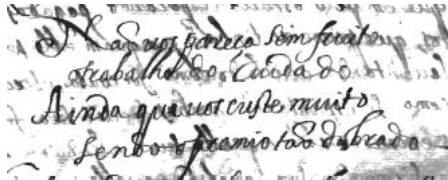 Não vos pareça sem fruito
trabalho do Cuidado
Ainda que vos custe muito
sendo o premio tão dobrado